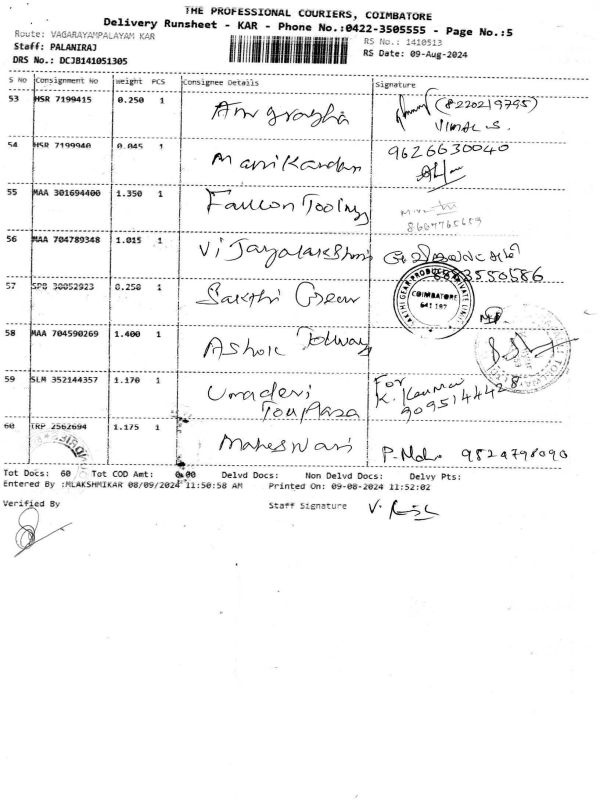 THE PROFESSIONAL COURIERS, COIMBATORE
Delivery Runsheet - KAR - Phone No.:0422-3505555 - Page No.:5
Route: VAGARAYAMPALAYAM KAR
RS No.: 1410513
Staff: PALANIRAJ
RS Date: 09-Aug-2024
DRS No.: DCJB141051305
S No Consignment No weight PCS Consignee Details Signature
53 HSR 7199415 0.250 1 Anugragha (8220219795)
VIMAL S.
54 HSR 7199940 0.045 1 Manikandan 9626630040
55 MAA 301694400 1.350 1 Falcon Toolings
56 MAA 704789348 1.015 1 Vijayalakshmi
57 SPB 30052923 0.250 1 Sakthi Gear
SAKTHI GEAR PRODUCTS PRIVATE LIMITED
COIMBATORE
641 197
58 MAA 704590269 1.400 1 Ashok Toolways
59 SLM 352144357 1.170 1 Umadevi For
Toll Plaza K. Kannan
9095144428
60 TRP 2562694 1.175 1 Maheswari P. 9829798090
Tot Docs: 60 Tot COD Amt: 0.00 Delvd Docs: Non Delvd Docs: Delvy Pts:
Entered By :MLAKSHMIKAR 08/09/2024 11:50:58 AM Printed On: 09-08-2024 11:52:02
Verified By Staff Signature V.